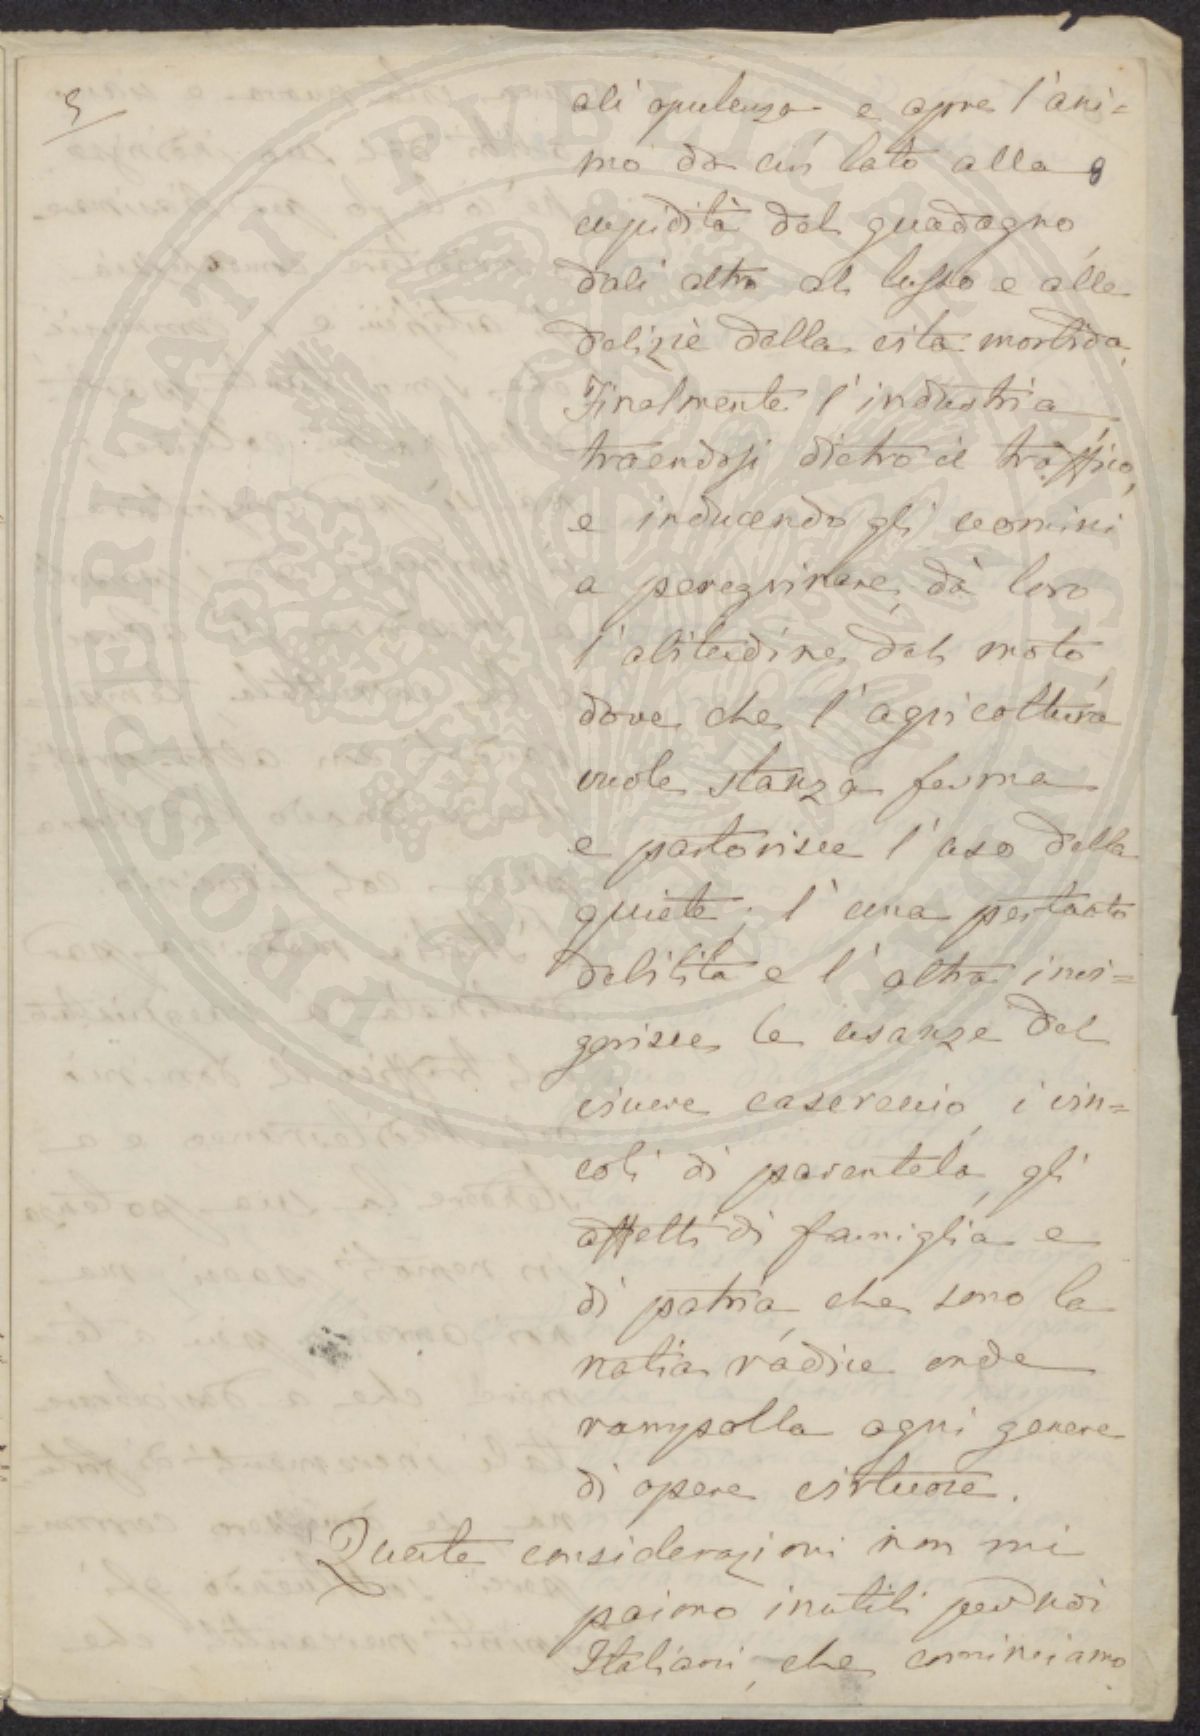 5
ali opulenza e apre l'ani=
mo da un lato alla
cupidità del guadagno,
dall' altro al lusso e alle
delizie della vita morbida.
Finalmente l'industria
traendosi dietro il traffico,
e inducendo gli uomini
a peregrinare, dà loro
l'abitudine del moto,
dove che l'agricoltura
vuole stanza ferma
e partorisce l'uso della
quiete; l'una pertanto
debilita e l'altra invi=
gorisce le usanze del
vivere casereccio, i vin=
coli di parentela, gli
affetti di famiglia e
di patria, che sono la
natia radice onde
rampolla ogni genere
di opere virtuose.
Queste considerazioni non mi
paiono inutili per noi
Italiani, che cominciamo
PROSPERITATI PVBLICAE